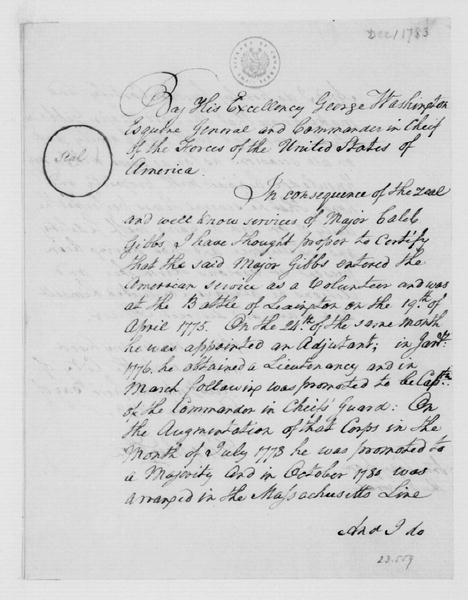 Dec / 1783
By His Excellency George Washington
Esquire General and Commander in Cheif
of the Forces of the United States of
America.
Seal
In consequence of the zeal
and well know services of Major Caleb
Gibbs, I have thought proper to Certify
that the said Major Gibbs entered the
American service as a Volunteer and was
at the Battle of Lexington on the 19th of
April 1775. On the 24th of the same month
he was appointed an Adjutant; in Jany
1776. he obtained a Lieutenancy and in
March following was promoted to be Captn
of the Commander in Chiefs' Guard: On
the Augmentation of that Corps in the
Month of July 1778 he was promoted to
a Majority and in October 1780 was
arranged in the Massachusetts Line
And I do
23.559